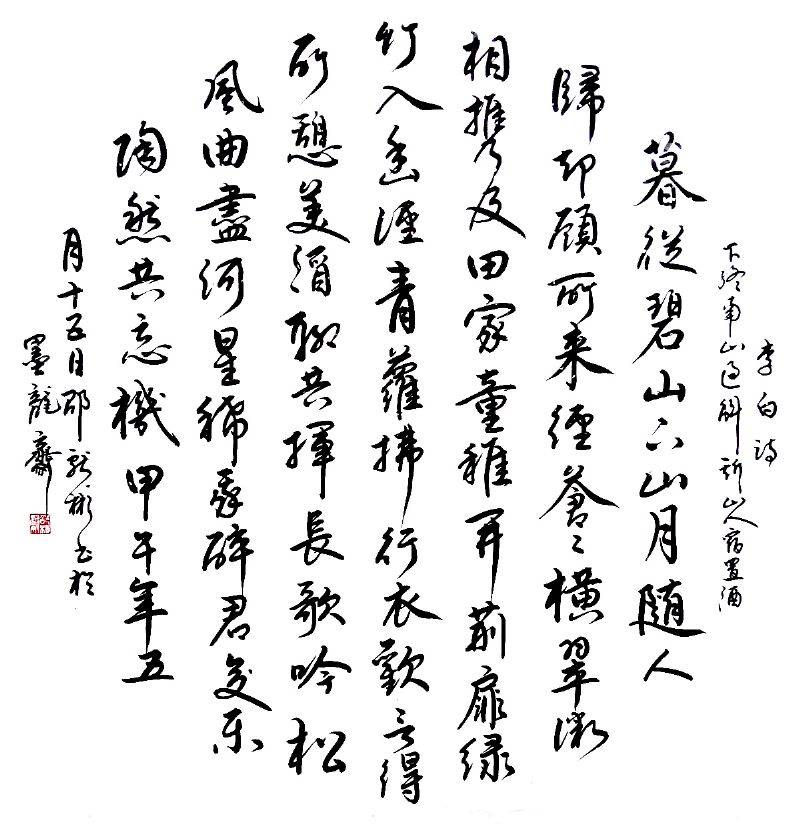 李白诗
下终南山过斛斯山人宿置酒
暮從碧山下山月随人
歸却顧所来徑蒼々橫翠微
相携及田家童稚開荆扉绿
竹入幽徑青蘿拂行衣歡言得
所憩美酒聊共揮長歌吟松
風曲盡河星稀我醉君复乐
陶然共忘機甲午年五
月十五日邵彬书於
墨龍齋